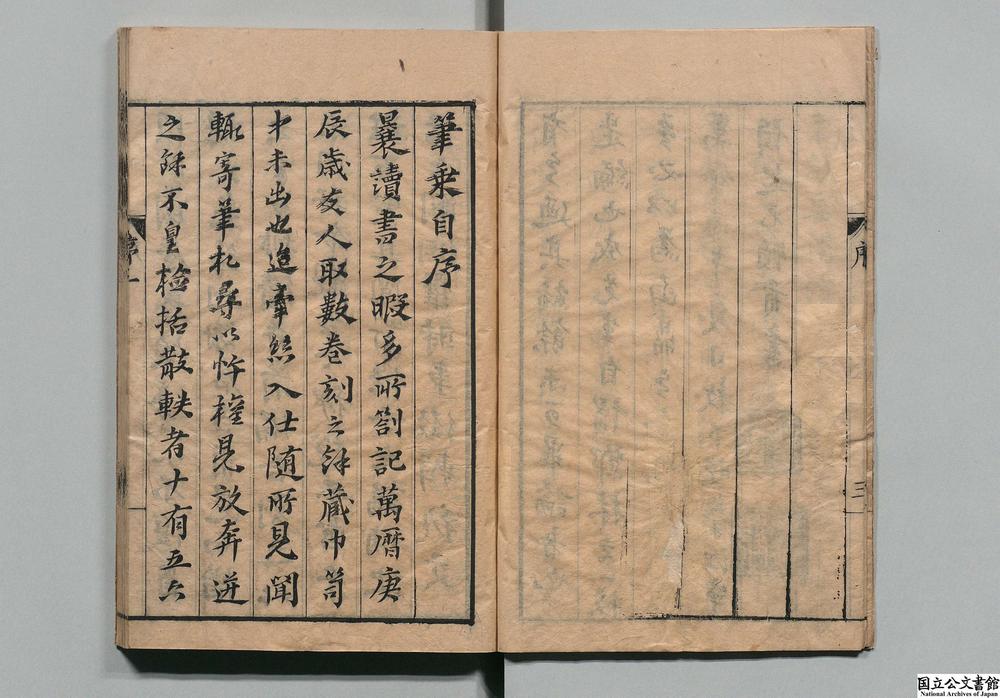 序
三
筆乗自序
曩讀書之暇多所劄記萬曆庚
辰歲友人取數卷刻之餘藏巾笥
中未出也迨牽絲入仕随所見聞
輒寄筆札尋以忤權見放奔迸
之餘不皇檢括散軼者十有五六
序
一
国立公文書館
National Archives of Japan